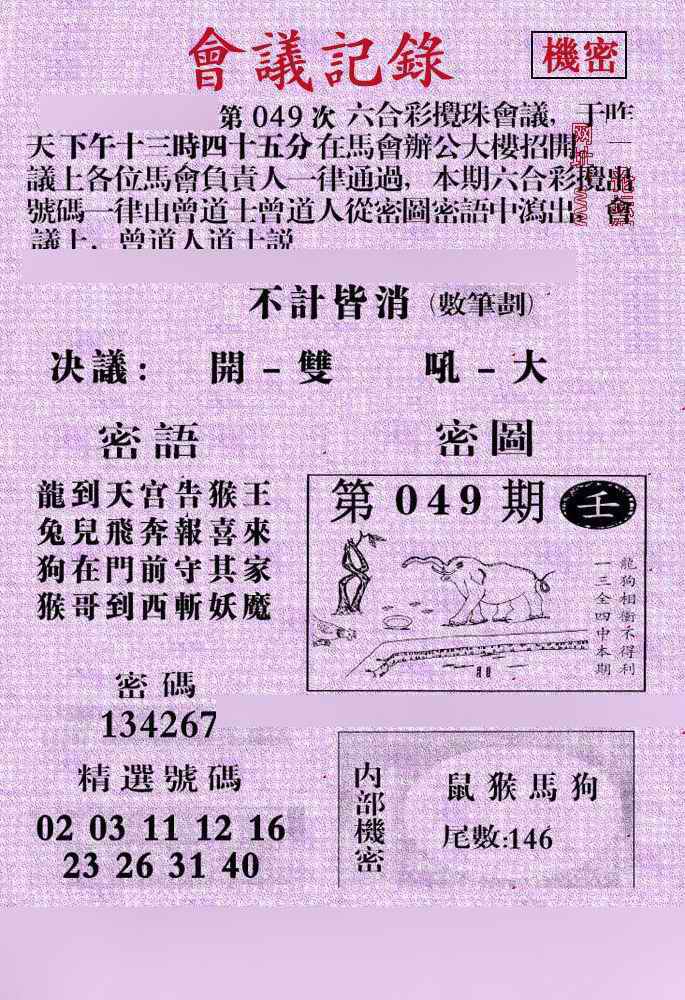 會議記錄
機密
第 049 次 六合彩攪珠會議，于昨
天下午十三時四十五分在馬會辦公大樓招開
議上各位馬會負責人一律通過，本期六合彩攪出
號碼一律由曾道士曾道人從密圖密語中瀉出 會
議上，曾道人道士說
不計皆消（數筆劃）
决議： 開－雙 吼－大
密語
龍到天宫告猴王
兔兒飛奔報喜來
狗在門前守其家
猴哥到西斬妖魔
密圖
第 049 期 壬
龍狗相衝不得利
一三全四中本期
密碼
134267
精選號碼
02 03 11 12 16
23 26 31 40
内部機密
鼠猴馬狗
尾數:146